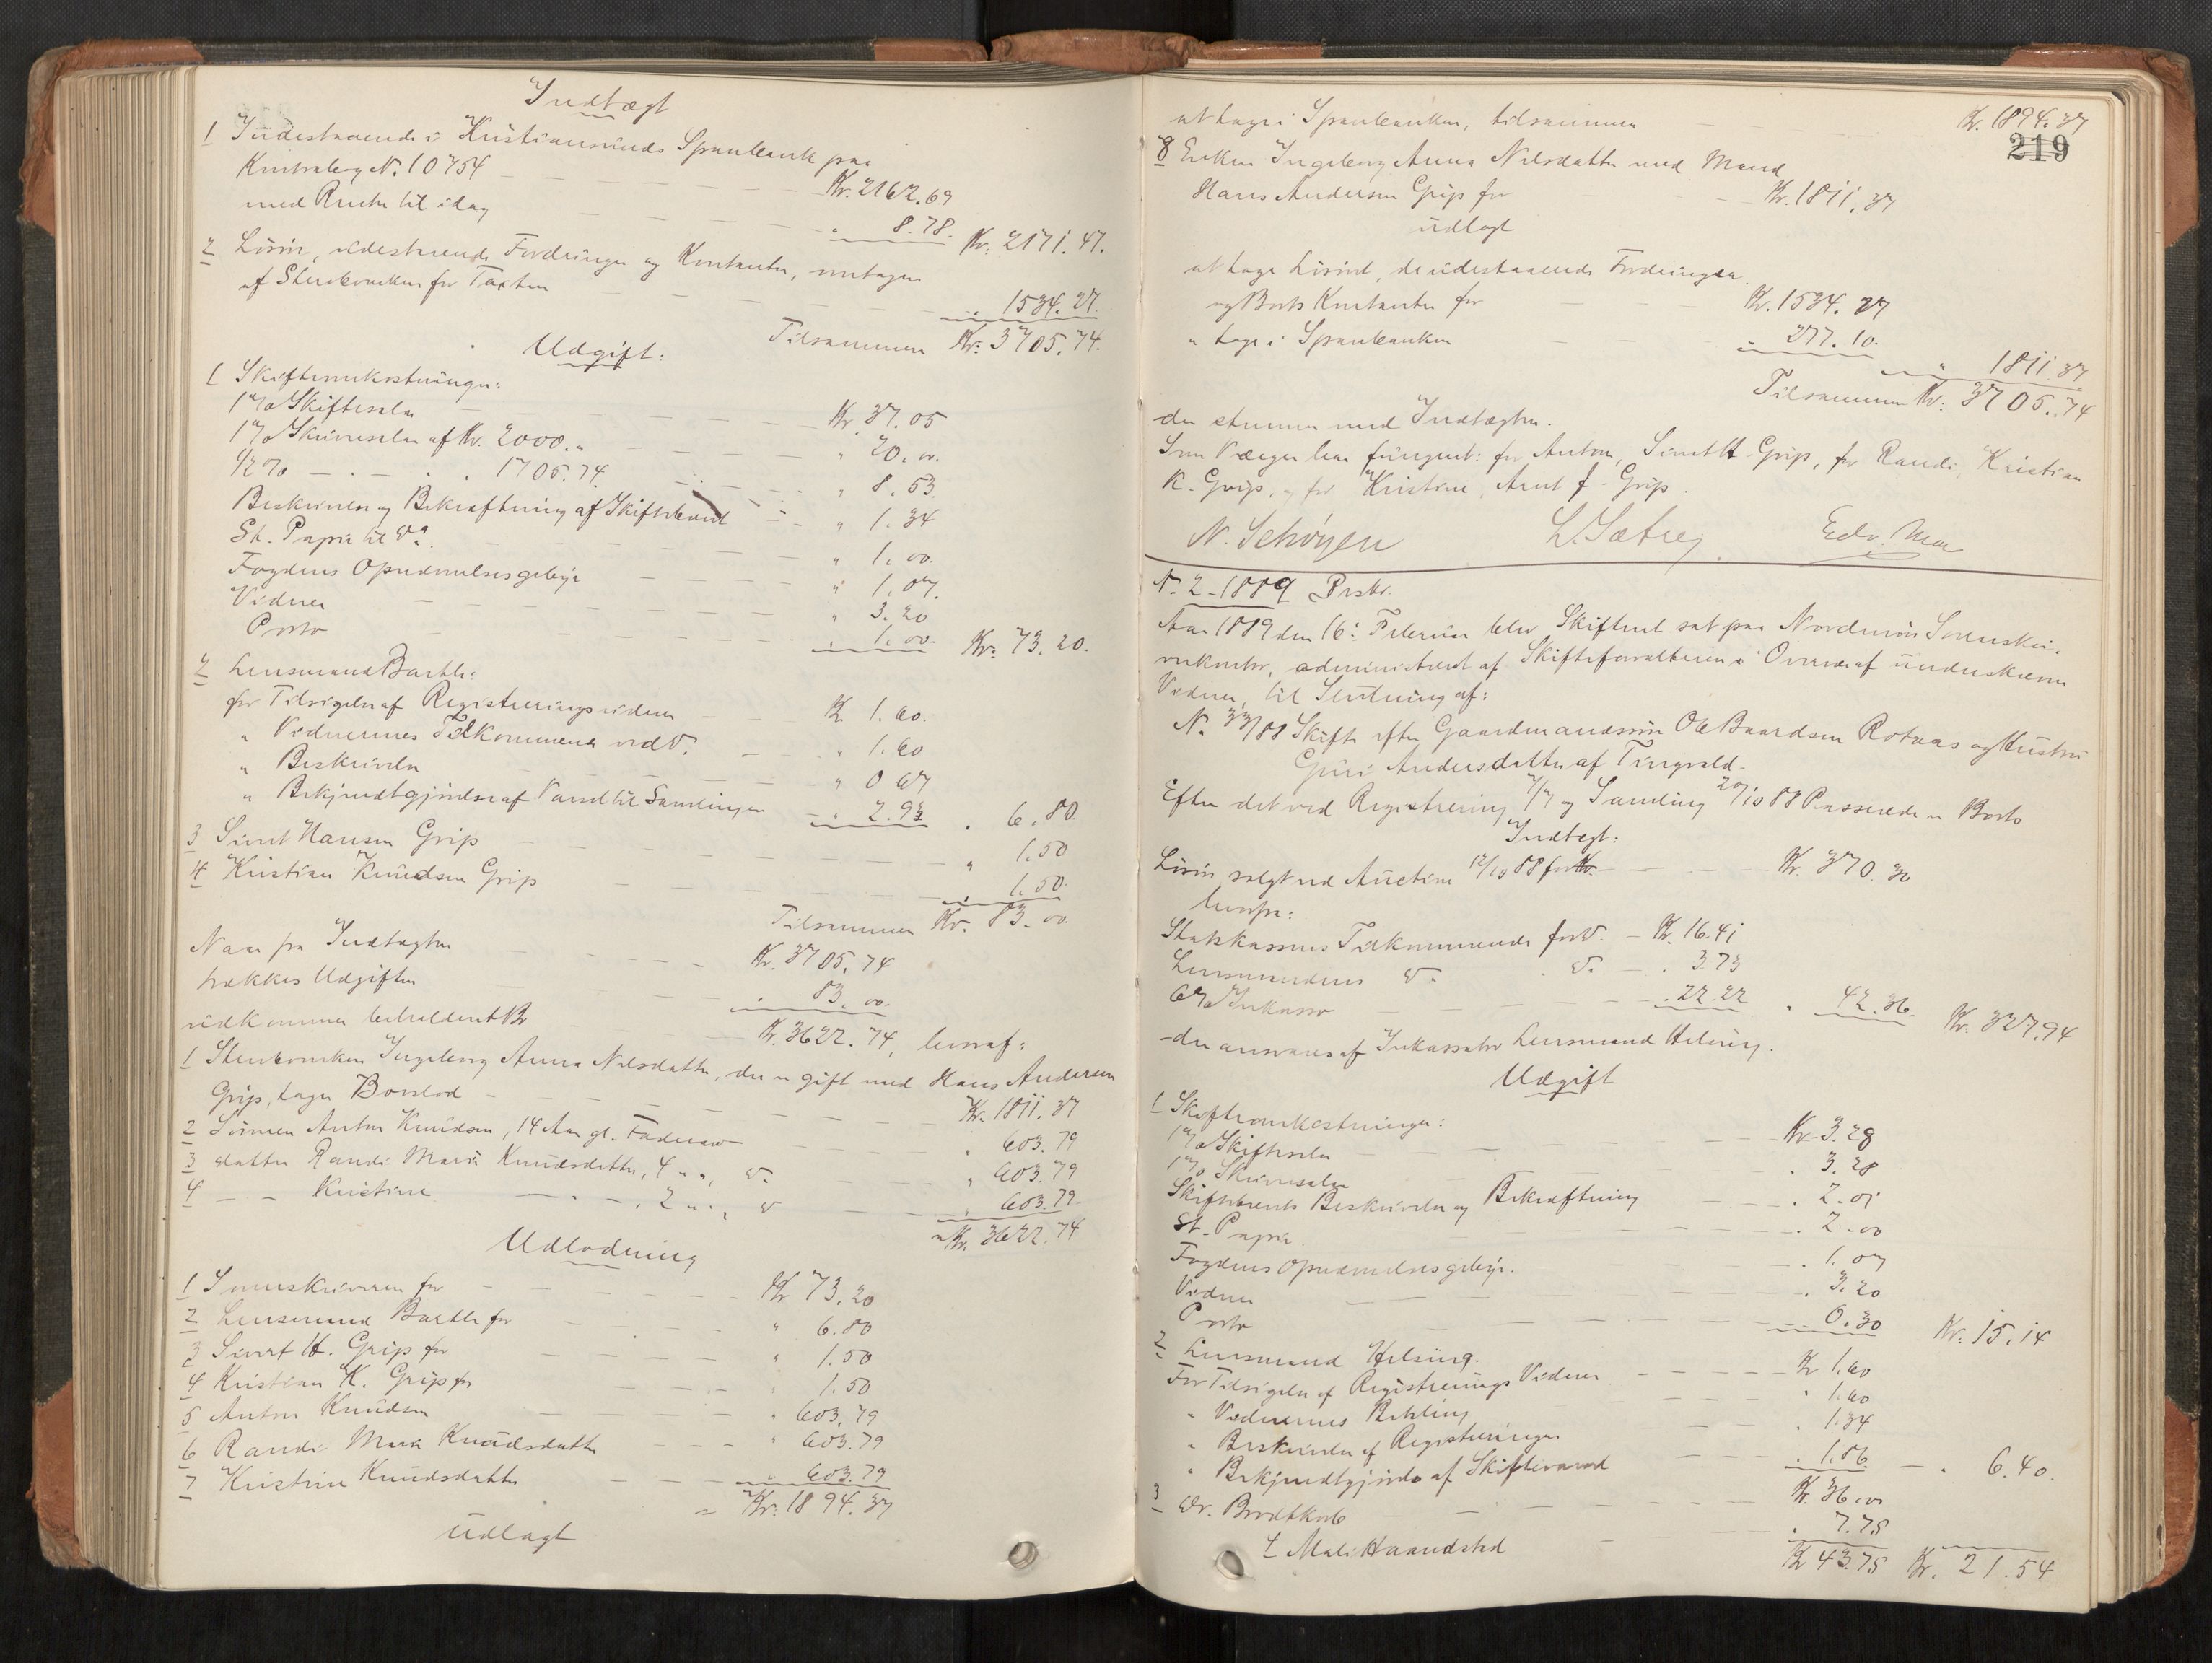 Indtægt
1 Indestaaende i Kristiansunds Sparebank paa
Kontrabog N. 10754 Kr. 2162.69
med Renter til idag " 8.78. Kr. 2171.47.
2 Løsøre, udestaaende Fordringer og Kontanter, modtagen
af Stervboenken for Taxten " 1534.27.
Tilsammen Kr. 3705.74.
Udgift:
1 Skifteomkostninger:
1 % Skiftesalær Kr. 37.05
1 % Skriversalær af Kr. 2000." " 20.00.
1/2 % — . — . " 1705.74. " 8.53.
Beskrivelse og Bekræftning af Skiftebrevet " 1.34
St. Papir til Do. " 1.00.
Fogdens Opnævnelsesgebyr " 1.07.
Vidner " 3.20
Porto " 1.00. Kr. 73.20.
2 Lensmand Barthe:
for Tilsigelse af Registreringsvidner Kr. 1.60.
" Vidnernes Tilkommende ved Do. " 1.60
" Beskrivelse " 0.67
" Bekjendtgjørelse af Varsel til Samlingen " 2.93 " 6.80.
3 Sivert Hansen Grip " 1.50
4 Kristian Knudsen Grip " 1.50.
Tilsammen Kr. 83.00.
Naar fra Indtægten Kr. 3705.74
trækkes Udgiften " 83.00.
udkommer beholdent Bo Kr. 3622.74, hvoraf:
1 Stervboenken Ingeborg Anna Nilsdatter, der er gift med Hans Andersen
Grip, tager Boeslod Kr. 1811.37
2 Sønnen Anton Knudsen, 14 Aar gl. Faderarv " 603.79
3 datter Randi Maria Knudsdatter, 4 " ", Do. " 603.79
4 — " — Kristine — " — , 2 " ", Do " 603.79
= Kr. 3622.74
Udlodning
1 Sorenskriveren for Kr. 73.20
2 Lensmand Barthe for " 6.80
3 Sivert H. Grip for " 1.50
4 Kristian K. Grip for " 1.50
5 Anton Knudsen " 603.79
6 Randi Maria Knudsdatter " 603.79
7 Kristine Knudsdatter " 603.79
= Kr. 1894.37
udlagt
at tage i Sparebanken, tilsammen Kr. 1894.37
219
8 Enken Ingeborg Anna Nilsdatter med Mand
Hans Andersen Grip for Kr. 1811.37
udlagt
at tage Løsøret, de udestaaende Fordringer
og Boets Kontanter for Kr. 1534.27
" tage i Sparebanken " 277.10.
" 1811.37
Tilsammen Kr. 3705.74
der stemmer med Indtægten.
Som Værger har fungeret: for Anton, Sivert H. Grip, for Randi, Kristian
K. Grip, og for Kristine, Arnt J. Grip.
N. Schøyen L. Sætrey Edv. Moe
N. 2 - 1889 Beskr.
Aar 1889 den 16: Februar blev Skifteret sat paa Nordmøre Sorenskri-
verkontor, administreret af Skifteforvalteren i Overvær af underskrevne
Vidner, til Slutning af:
N. 33/88 Skifte efter Gaardmandssøn Ole Baardsen Rotaas og Hustru
Guri Andersdatter af Tingvold.
Efter det ved Registrering 7/7 og Samling 20/10 88 Passerede er Boets
Indtægt:
Løsøre solgt ved Auction 12/10 88 for Kr. Kr. 370.30
hvorfra:
Statskassens Tilkommende for Do. Kr. 16.41
Lensmandens Do. Do. " 3.73
6 % Inkasso " 22.22 " 42.36. Kr. 327.94
der ansvares af Inkassator Lensmand Helsing.
Udgift
1 Skifteomkostninger:
1 % Skiftesalær Kr. 3.28
1 % Skriversalær " 3.28
Skiftebrevets Beskrivelse og Bekræftning " 2.01
St. Papir " 2.00
Fogdens Opnævnelsesgebyr. " 1.07
Vidner " 3.20
Porto " 0.30 Kr. 15.14
2 Lensmand Helsing.
For Tilsigelse af Registrerings Vidner Kr. 1.60
" Vidnernes Betaling " 1.60
" Beskrivelse af Registreringen " 1.34
" Bekjendtgjørelse af Skiftevarsel " 1.86 " 6.40.
3 Dr. Brodtkorb Kr. 36.00
4 Mali Haandstad " 7.75
Kr. 43.75 Kr. 21.54